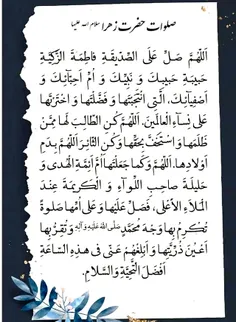 صلوات حضرت زهرا سلام الله علیها
اَللّٰهُمَّ صَلِّ عَلَی الصِّدّیقَةِ فاطِمَةَ الزَّکِیَّةِ
حَبیبَةِ حَبیبِکَ وَ نَبِیِّکَ وَ اُمِّ اَحِبّآئِکَ وَ
اَصْفِیآئِکَ، الَّتِی انْتَجَبْتَها وَ فَضَّلْتَها وَ اخْتَرْتَها
عَلی نِسآءِ الْعالَمینَ. اَللّٰهُمَّ کُنِ الطّالِبَ لَها مِمَّنْ
ظَلَمَها وَ اسْتَخَفَّ بِحَقِّها وَ کُنِ الثّائِرَ اَللّٰهُمَّ بِدَمِ
اَوْلادِها. اَللّٰهُمَّ وَ کَما جَعَلْتَها اُمَّ اَئِمَّةِ الْهُدی وَ
حَلیلَةَ صاحِبِ اللِّوآءِ وَ الْکَریمَةَ عِنْدَ
الْمَلَاءِ الْاَعْلی، فَصَلِّ عَلَیْها وَ عَلی اُمِّها صَلوةً
تُکْرِمُ بِها وَجْهَ مُحَمَّدٍ صلی الله علیه و آله وَ تُقِرُّ بِها
اَعْیُنَ ذُرِّیَّتِها وَ اَبْلِغْهُمْ عَنّی فی هذِهِ السّاعَةِ
اَفْضَلَ التَّحِیَّةِ وَ السَّلامِ.